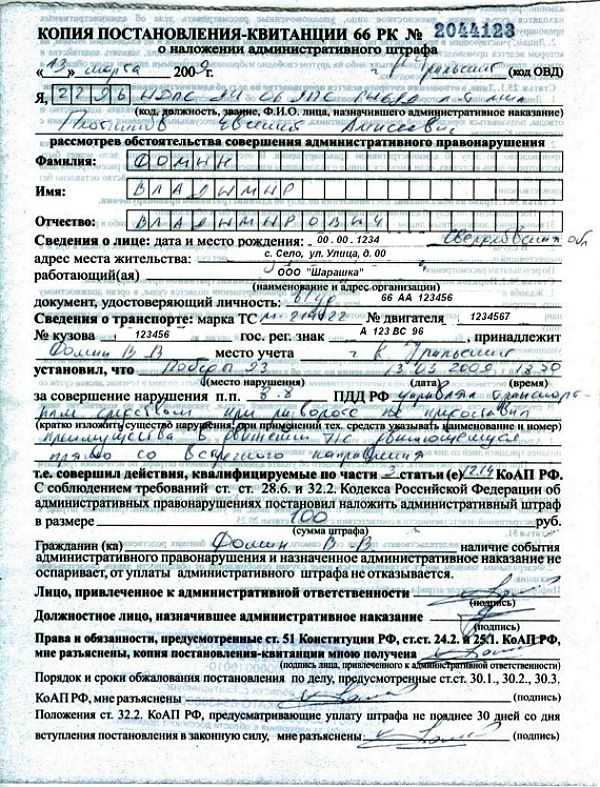 КОПИЯ ПОСТАНОВЛЕНИЯ-КВИТАНЦИИ 66 РК № 2044123
о наложении административного штрафа
«13» марта 2009г. г Уральский (код ОВД)
Я, 2296 ИДПС
(код, должность, звание, Ф.И.О. лица, назначившего административное наказание)
Евгений Алексеевич
рассмотрев обстоятельства совершения административного правонарушения
Фамилия: ФОМИН
Имя: ВЛАДИМИР
Отчество: ВЛАДИМИРОВИЧ
Сведения о лице: дата и место рождения: 00.00.1234 Свердловская обл
адрес места жительства: с. Село, ул. Улица, д. 00
работающий(ая) ООО "Шарашка"
(наименование и адрес организации)
документ, удостоверяющий личность: в/уд 66 АА 123456
Сведения о транспорте: марка ТС М-214122 № двигателя 1234567
№ кузова 123456 гос. рег. знак А 123 ВС 96, принадлежит
Фомин В В место учета г К Уральский
установил, что Победы 93 13 03 2009 18 30
(место нарушения) (дата) (время)
за совершение нарушения п.п. 8.8 ПДД РФ управляя транспорт
ным средством при развороте не предоставил
(кратко изложить существо нарушения, при применений тех. средств указывать наименование и номер)
преимущества в движении т/с движущемуся
прямо со встречного направления
т.е. совершил действия, квалифицируемые по части 3 статьи (е) 12.14 КоАП РФ.
С соблюдением требований ст. ст. 28.6. и 32.2. Кодекса Российской Федерации об
административных правонарушениях постановил наложить административный штраф
в размере 100 руб.
(сумма штрафа)
Гражданин (ка) Фомин В В наличие события
административного правонарушения и назначенное административное наказание не
оспаривает, от уплаты административного штрафа не отказывается.
Лицо, привлеченное к административной ответственности
(подпись)
Должностное лицо, назначившее административное наказание
(подпись)
Права и обязанности, предусмотренные ст. 51 Конституции РФ, ст.ст. 24.2. и 25.1. КоАП РФ,
мне разъяснены, копия постановления-квитанции мною получена
(подпись лица, привлеченного к административной ответственности)
Порядок и сроки обжалования постановления по делу, предусмотренные ст.ст. 30.1., 30.2., 30.3.
КоАП РФ, мне разъяснены (подпись)
Положения ст. 32.2. КоАП РФ, предусматривающие уплату штрафа не позднее 30 дней со дня
вступления постановления в законную силу, мне разъяснены (подпись)